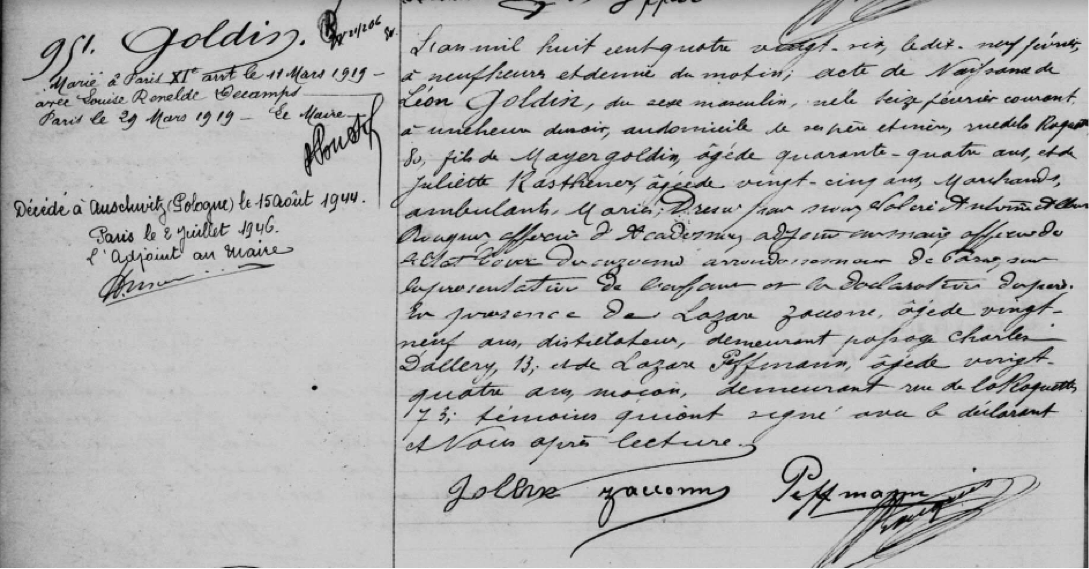 951. Goldin.
Marié à Paris XIe arrt le 11 Mars 1919 –
avec Louise Renelde Decamps
Paris le 29 Mars 1919 – Le Maire –
Décédé à Auschwitz (Pologne) le 15 Août 1944.
Paris le 2 Juillet 1946.
l'Adjoint au Maire
L'an mil huit cent quatre vingt-six, le dix-neuf février,
à neuf heures et demie du matin; acte de Naissance de
Léon Goldin, du sexe masculin, né le seize février courant
à une heure du soir, au domicile de ses père et mère, rue de la Roquette
80, fils de Mayer Goldin, âgé de quarante-quatre ans, et de
Juliette , âgée de vingt-cinq ans, Marchands,
ambulants, Mariés; Dressé par nous
officier d'Académie, adjoint au maire, officier de
l'Etat Civil du onzième arrondissement de Paris, sur
la présentation de l'enfant et la déclaration du père.
En présence de Lazare Zaccone, âgé de vingt-
neuf ans, distillateur, demeurant passage Charles
Dallery, 13; et de Lazare Peffmann, âgé de vingt-
quatre ans, maçon, demeurant rue de la Roquette
73; témoins qui ont signé avec le déclarant
et Nous après lecture.
Peffmann